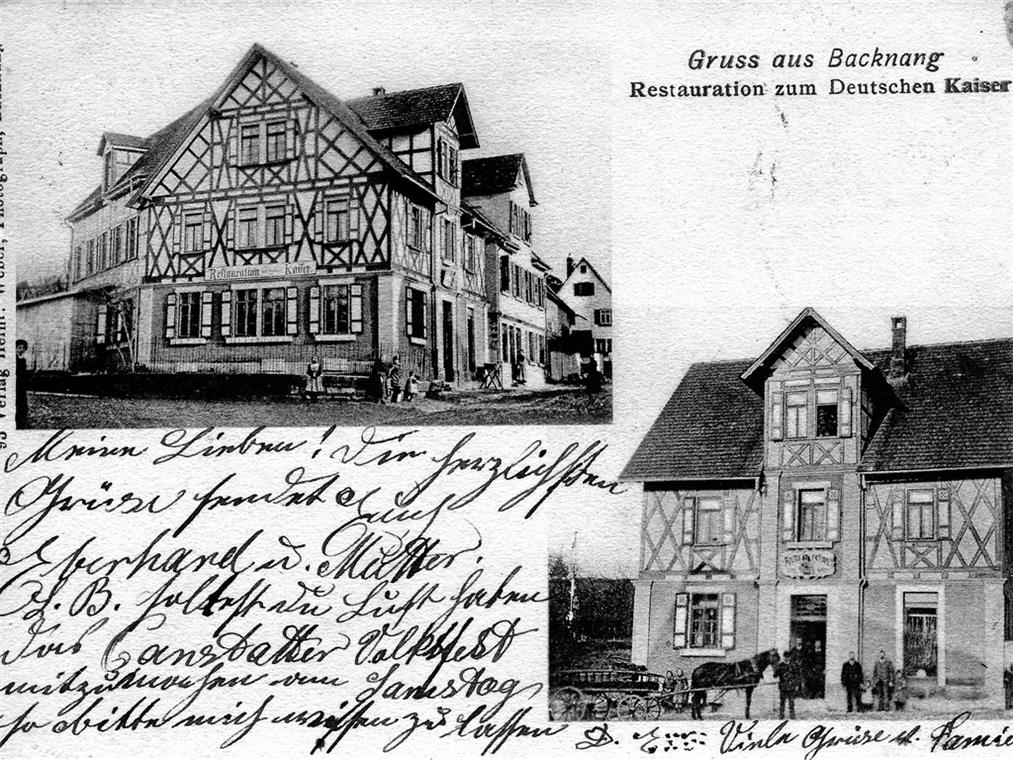 Gruss aus Backnang
Restauration zum Deutschen Kaiser
Restauration Kaiser.
Verlag Heinr. Weber, Photograph,
Meine Lieben! Die herzlichsten
Grüsse sendet Euch
Eberhard u. Mutter.
L. B. solltest du Lust haben
das Canstatter Volksfest
mitzumachen am Samstag
so bitte mich wissen zu lassen
Viele Grüsse a.